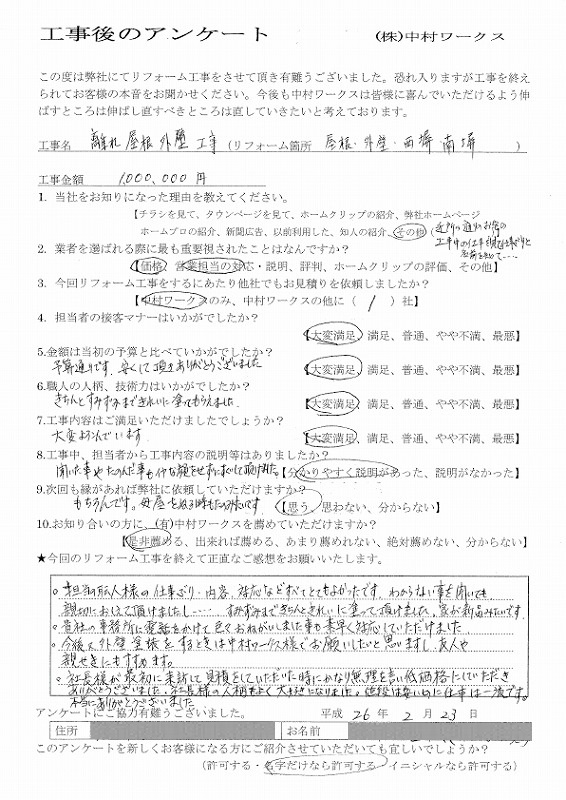 工事後のアンケート (株)中村ワークス
この度は弊社にてリフォーム工事をさせて頂き有難うございました。恐れ入りますが工事を終え
られてお客様の本音をお聞かせください。今後も中村ワークスは皆様に喜んでいただけるよう伸
ばすところは伸ばし直すべきところは直していきたいと考えております。
工事名 離れ屋根外壁工事 (リフォーム箇所 屋根・外壁・西塀南塀 )
工事金額 1,000,000円
1. 当社をお知りになった理由を教えてください。
【チラシを見て、タウンページを見て、ホームクリップの紹介、弊社ホームページ
ホームプロの紹介、新聞広告、以前利用した、知人の紹介、その他(近所の通りのお宅の
工事中の仕事
2. 業者を選ばれる際に最も重要視されたことはなんですか?
【価格、営業担当の対応・説明、評判、ホームクリップの評価、その他】
3. 今回リフォーム工事をするにあたり他社でもお見積りを依頼しましたか?
【中村ワークスのみ、中村ワークスの他に( 1 )社】
4. 担当者の接客マナーはいかがでしたか?
【大変満足、満足、普通、やや不満、最悪】
5.金額は当初の予算と比べていかがでしたか?
予算通りです。安くして頂きありがとうございました
【大変満足、満足、普通、やや不満、最悪】
6.職人の人柄、技術力はいかがでしたか?
きちんとすみずみまできれいに塗ってもらえました
【大変満足、満足、普通、やや不満、最悪】
7.工事内容はご満足いただけましたでしょうか?
大変よろこんでいます
【大変満足、満足、普通、やや不満、最悪】
8.工事中、担当者から工事内容の説明等はありましたか?
聞いた事やたのんだ事もイヤな顔をせずに
【分かりやすく説明があった、説明がなかった】
9.次回も縁があれば弊社に依頼していただけますか?
もちろんです。母屋を
【思う、思わない、分からない】
10.お知り合いの方に、(有)中村ワークスを薦めていただけますか?
【是非薦める、出来れば薦める、あまり薦めれない、絶対薦めない、分からない】
★今回のリフォーム工事を終えて正直なご感想をお願いいたします。
○担当の職人様の仕事ぶり・内容、対応などすべてとてもよかったです。わからない事を聞いても
親切におしえて頂けましたし…… すみずみまできちんときれいに塗って頂けました。家が新品みたいです。
○貴社の事務所に電話をかけて色々おねがいした事も素早く対応していただけました
○今後又外壁塗装をするときは中村ワークス様でお願いしたいと思いますし、友人や
親せきにもすすめます。
○社長様が最初に来訪して見積をしていただいた時にかなり無理を言い低価格にしていただき
ありがとうございました。社長様の人柄もよく大好きになりました。値段は安いのに仕事は一流です。
本当にありがとうございました
アンケートにご協力有難うございました。 平成 26 年 2 月 23 日
住所 お名前
このアンケートを新しくお客様になる方にご紹介させていただいても宜しいでしょうか?
(許可する・名字だけなら許可する イニシャルなら許可する)